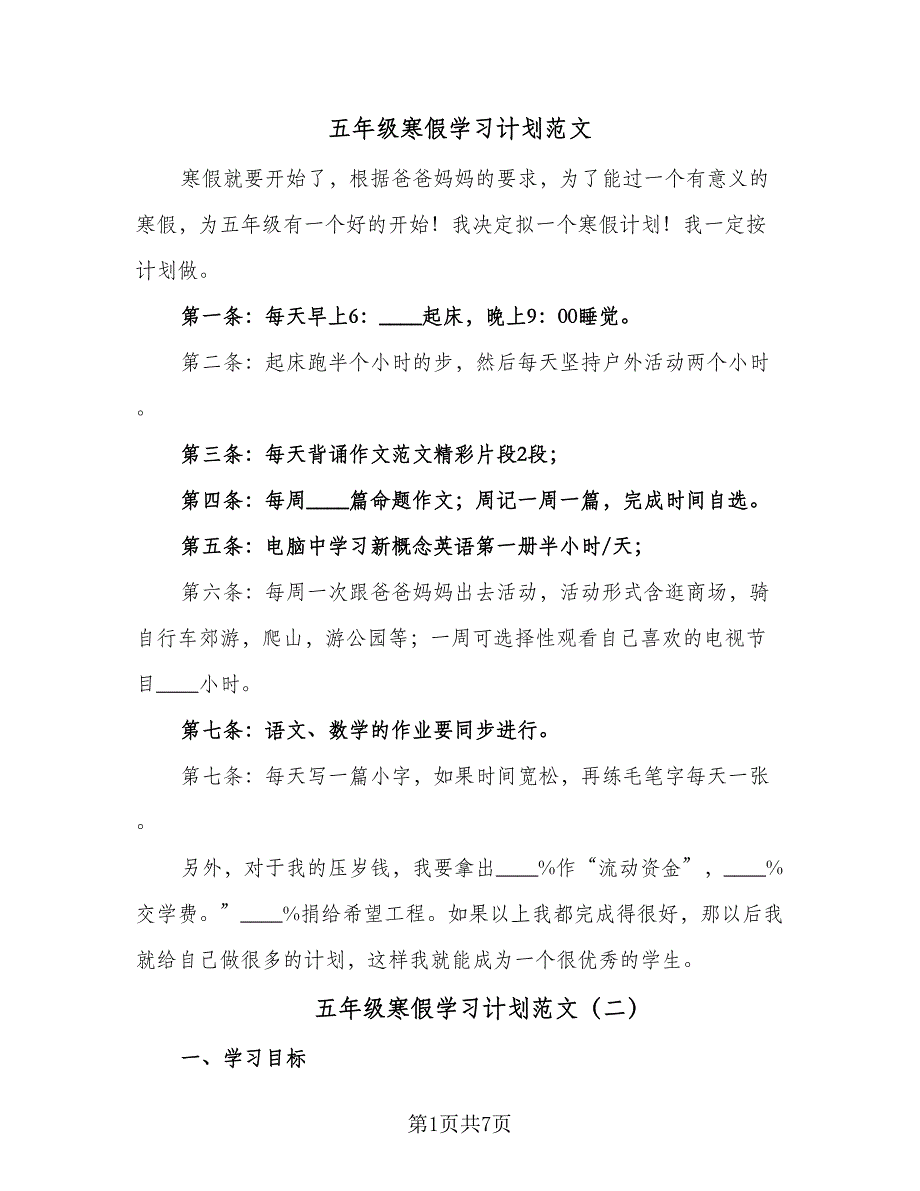 五年级寒假学习计划范文
寒假就要开始了，根据爸爸妈妈的要求，为了能过一个有意义的
寒假，为五年级有一个好的开始！我决定拟一个寒假计划！我一定按
计划做。
第一条：每天早上6：____起床，晚上9：00睡觉。
第二条：起床跑半个小时的步，然后每天坚持户外活动两个小时
。
第三条：每天背诵作文范文精彩片段2段；
第四条：每周____篇命题作文；周记一周一篇，完成时间自选。
第五条：电脑中学习新概念英语第一册半小时/天；
第六条：每周一次跟爸爸妈妈出去活动，活动形式含逛商场，骑
自行车郊游，爬山，游公园等；一周可选择性观看自己喜欢的电视节
目____小时。
第七条：语文、数学的作业要同步进行。
第七条：每天写一篇小字，如果时间宽松，再练毛笔字每天一张
。
另外，对于我的压岁钱，我要拿出____%作“流动资金”，____%
交学费。”____%捐给希望工程。如果以上我都完成得很好，那以后我
就给自己做很多的计划，这样我就能成为一个很优秀的学生。
五年级寒假学习计划范文（二）
一、学习目标
第1页共7页